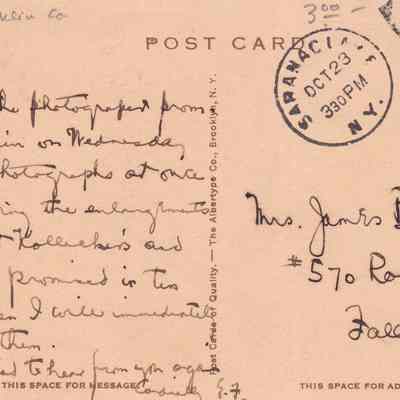 klin Co
3 00
POST CARD
SARANAC LAKE
OCT 23
330 PM
N.Y.
he photographer from
in on Wednesday
hotographs at once
ring the enlargements
Kollecker's and
promised in ten
en I will immediately
them.
ad to hear from you again
Cordially E.F.
Post Cards of Quality. — The Albertype Co., Brooklyn, N. Y.
Mrs. James
#570 Ro
Fall
THIS SPACE FOR MESSAGE
THIS SPACE FOR AD